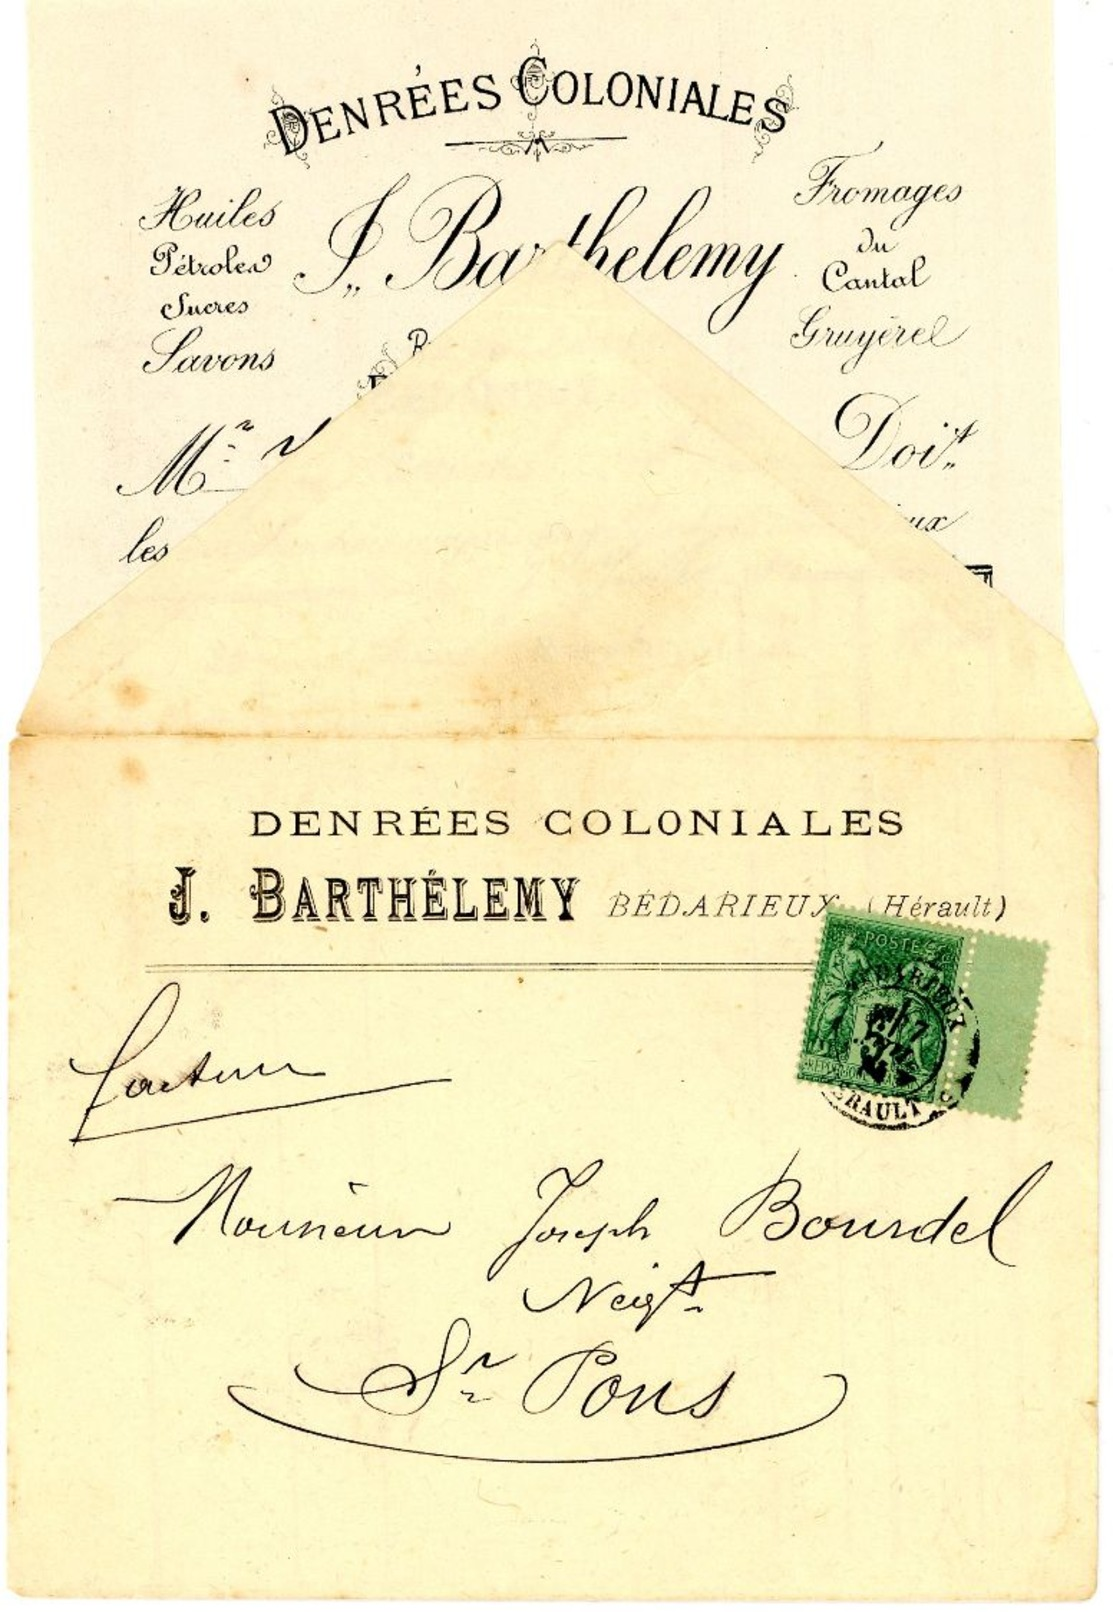 DENRÉES COLONIALES
J. Barthelemy
Huiles
Pétroles
Sucres
Savons
Fromages
du
Cantal
Gruyères
Mr
Doit
les
DENRÉES COLONIALES
J. BARTHÉLEMY BÉDARIEUX (Hérault)
POSTES
BÉDARIEUX
HÉRAULT
facture
Monsieur Joseph Bourdel
Negt
St Pons